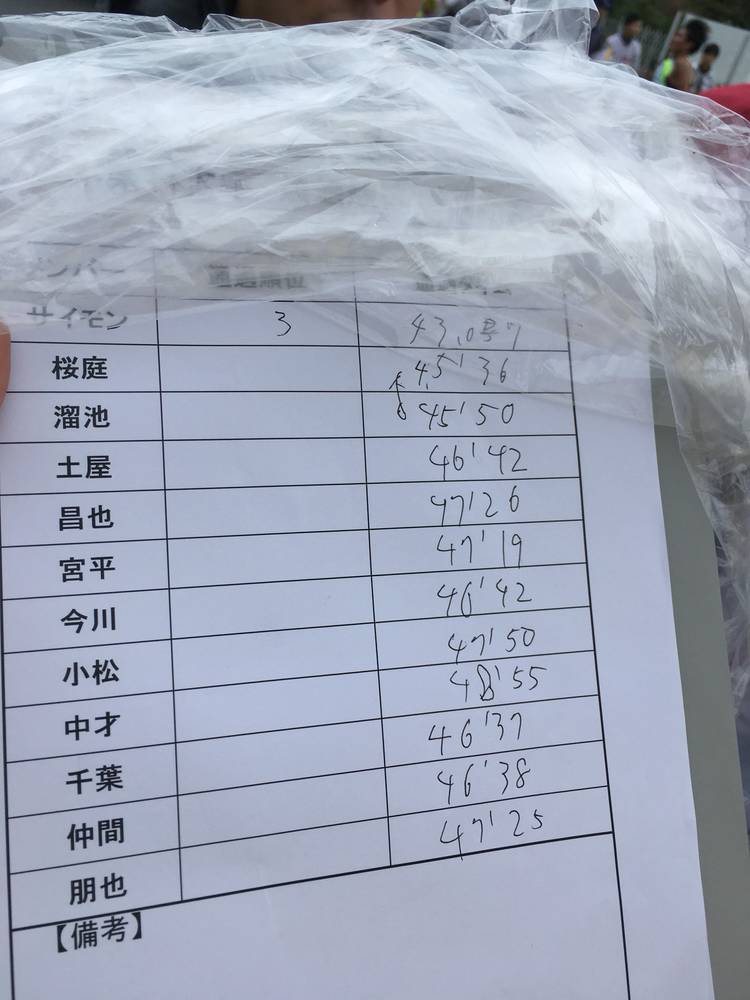 メンバー
サイモン 3
桜庭 45'36
溜池 45'50
土屋 46'42
昌也 47'26
宮平 47'19
今川 46'42
小松 47'50
中才 48'55
千葉 46'37
仲間 46'38
朋也 47'25
【備考】